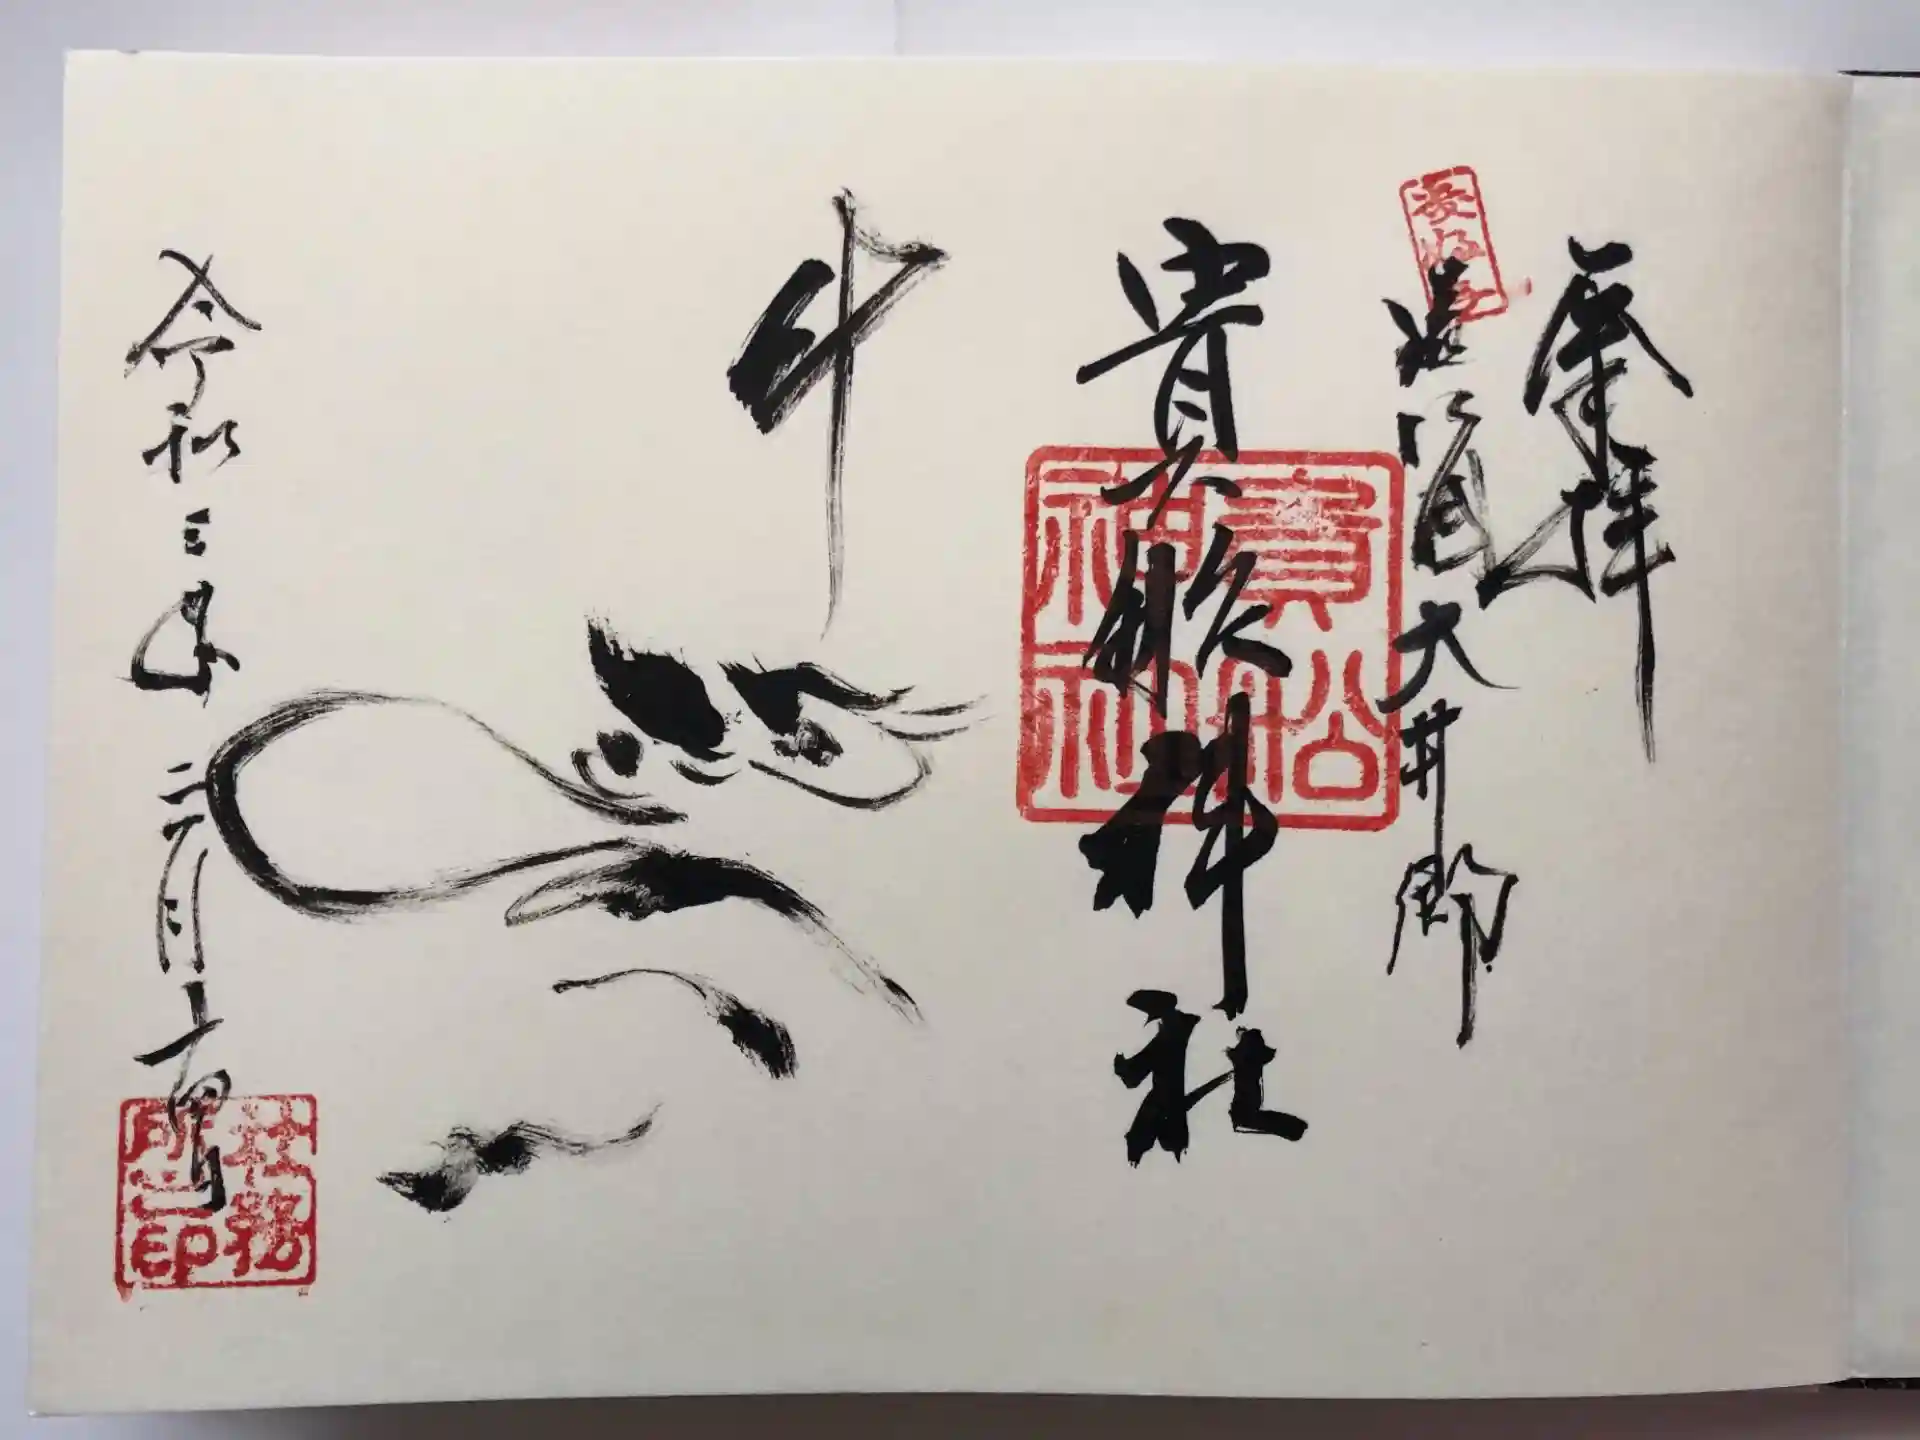 奉拝
遠江国大井郷
貴船神社
貴船神社
牛
令和三年二月十四日
社務所之印